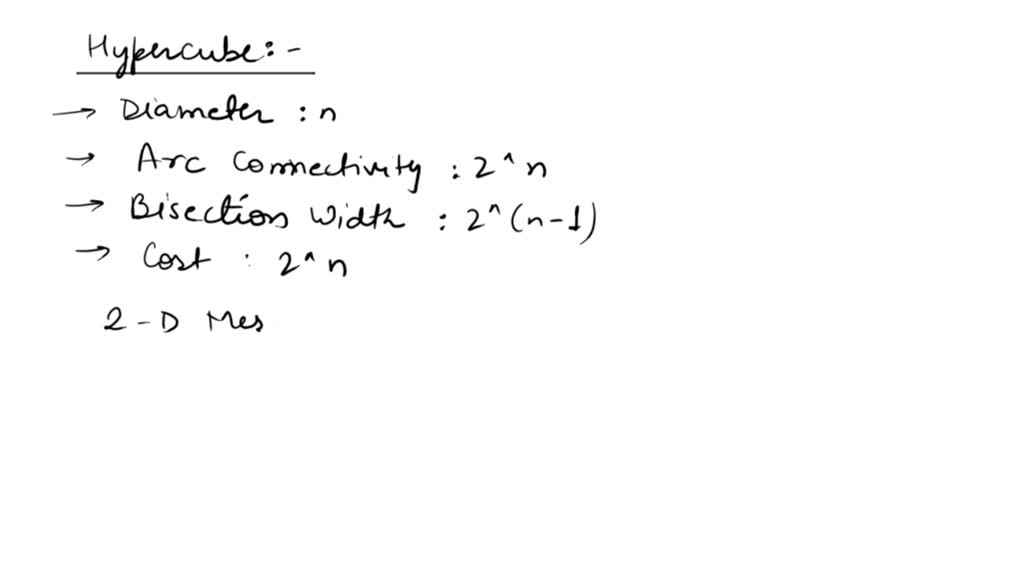 Hypercube:-
→ Diameter : n
→ Arc Connectivity : 2^n
→ Bisection Width : 2^(n-1)
→ Cost : 2^n
2-D Mes